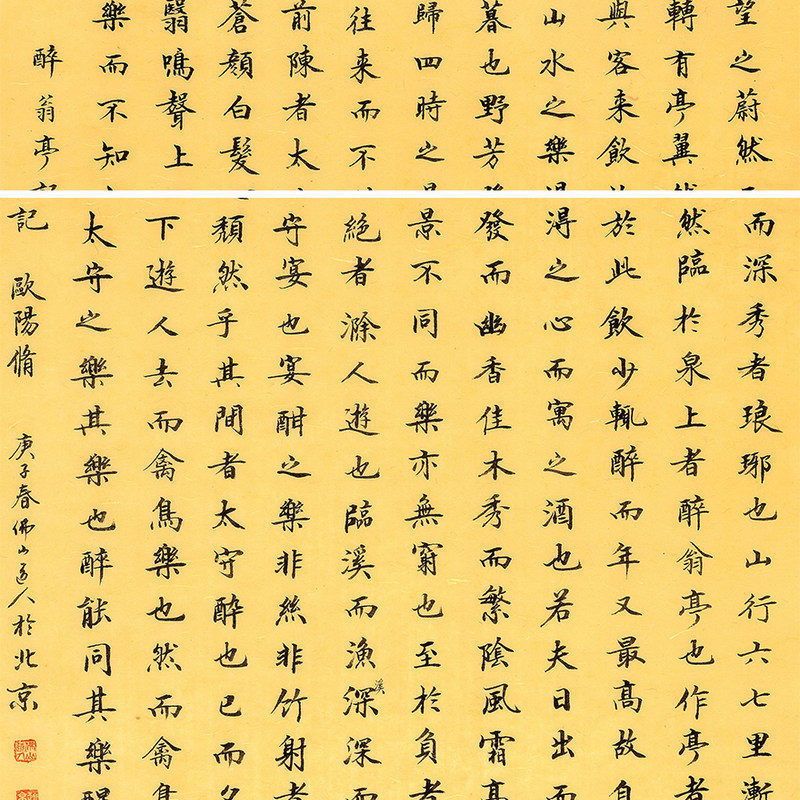 望之蔚然
轉有亭翼
與客來飲
山水之樂
暮也野芳
歸四時之
往来而不
前陳者太
蒼顏白髮
翳鳴聲上
樂而不知
醉翁亭
而深秀者琅琊也山行六七里漸
然臨於泉上者醉翁亭也作亭者
於此飲少輒醉而年又最高故自
得之心而寓之酒也若夫日出而
發而幽香佳木秀而繁陰風霜高
景不同而樂亦無窮也至於負者
絕者滁人遊也臨溪而漁深溪深而
守宴也宴酣之樂非絲非竹射者
頹然乎其間者太守醉也已而夕
下遊人去而禽鳥樂也然而禽鳥
太守之樂其樂也醉能同其樂醒
記 歐陽脩 庚子春佛山道人於北京